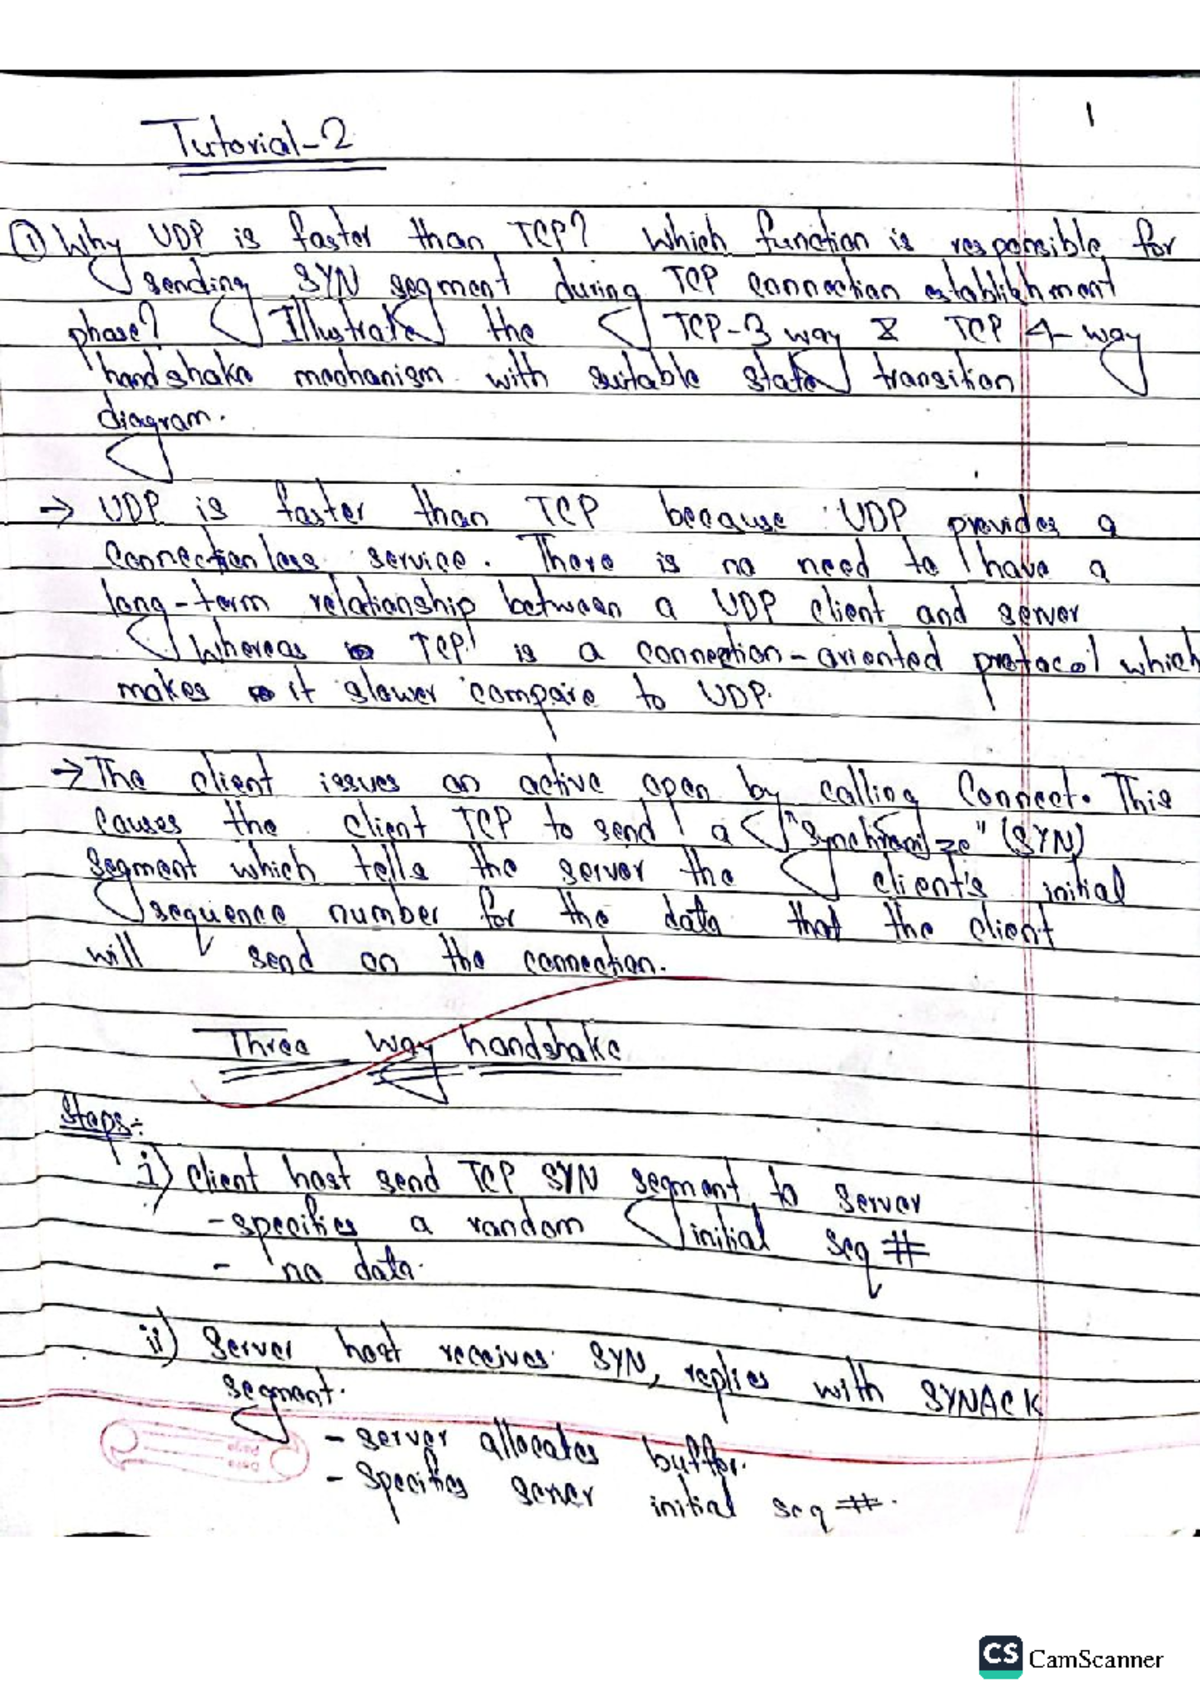 1
Tutorial-2
① Why UDP is faster than TCP? Which function is responsible for
sending SYN segment during TCP connection establishment
phase? Illustrate the TCP-3 way & TCP 4-way
handshake mechanism with suitable state transition
diagram.
→ UDP is faster than TCP because UDP provides a
connectionless service. There is no need to have a
long-term relationship between a UDP client and server
Whereas TCP is a connection-oriented protocol which
makes it slower compare to UDP.
→ The client issues an active open by calling Connect. This
causes the client TCP to send a "Synchronize" (SYN)
segment which tells the server the client's initial
sequence number for the data that the client
will send on the connection.
Three way handshake
Steps:-
i) Client host send TCP SYN segment to server
- specifies a random initial seq #
- no data.
ii) Server host receives SYN, replies with SYNACK
segment.
- server allocates buffer.
- Specifies server initial seq #.
CS CamScanner